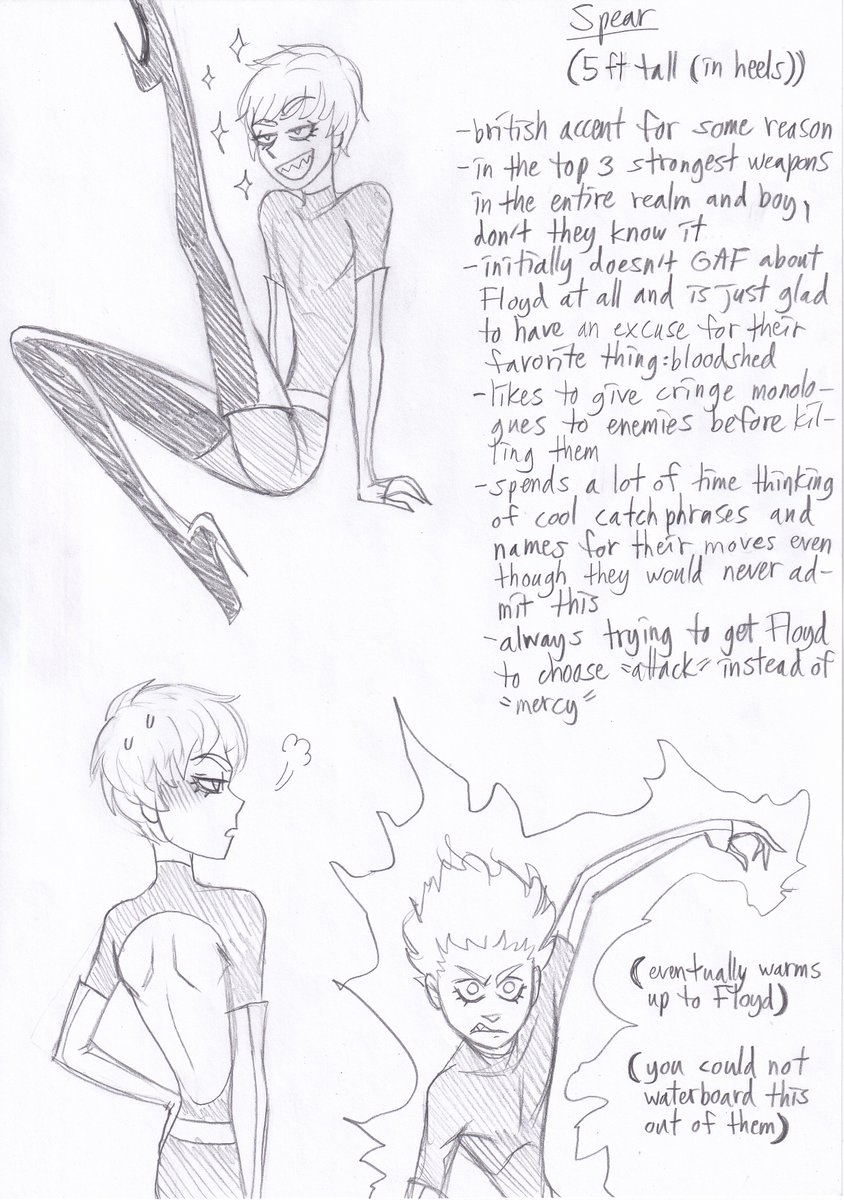 Spear
(5 ft tall (in heels))
-british accent for some reason
-in the top 3 strongest weapons
in the entire realm and boy,
don't they know it
-initially doesn't GAF about
Floyd at all and is just glad
to have an excuse for their
favorite thing:bloodshed
-likes to give cringe monolo-
gues to enemies before kil-
ling them
-spends a lot of time thinking
of cool catchphrases and
names for their moves even
though they would never ad-
mit this
-always trying to get Floyd
to choose "attack" instead of
"mercy"
(eventually warms
up to Floyd)
(you could not
waterboard this
out of them)